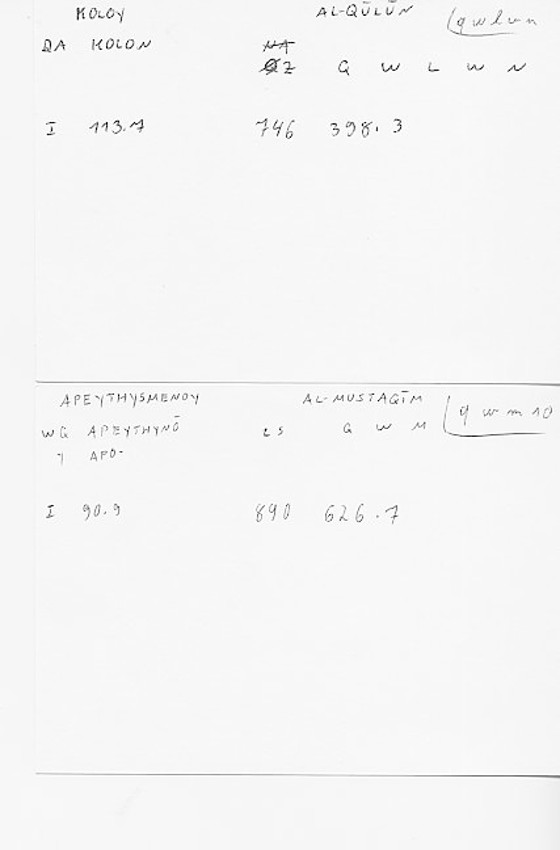 KOLOY AL-QŪLŪN qwlwn
QA KOLON
QZ Q W L W N
I 113.7 746 398.3
APEYTHYSMENOY AL-MUSTAQĪM qwm10
WG APEYTHYNŌ ES Q W M
Y APO-
I 90.9 890 626.7